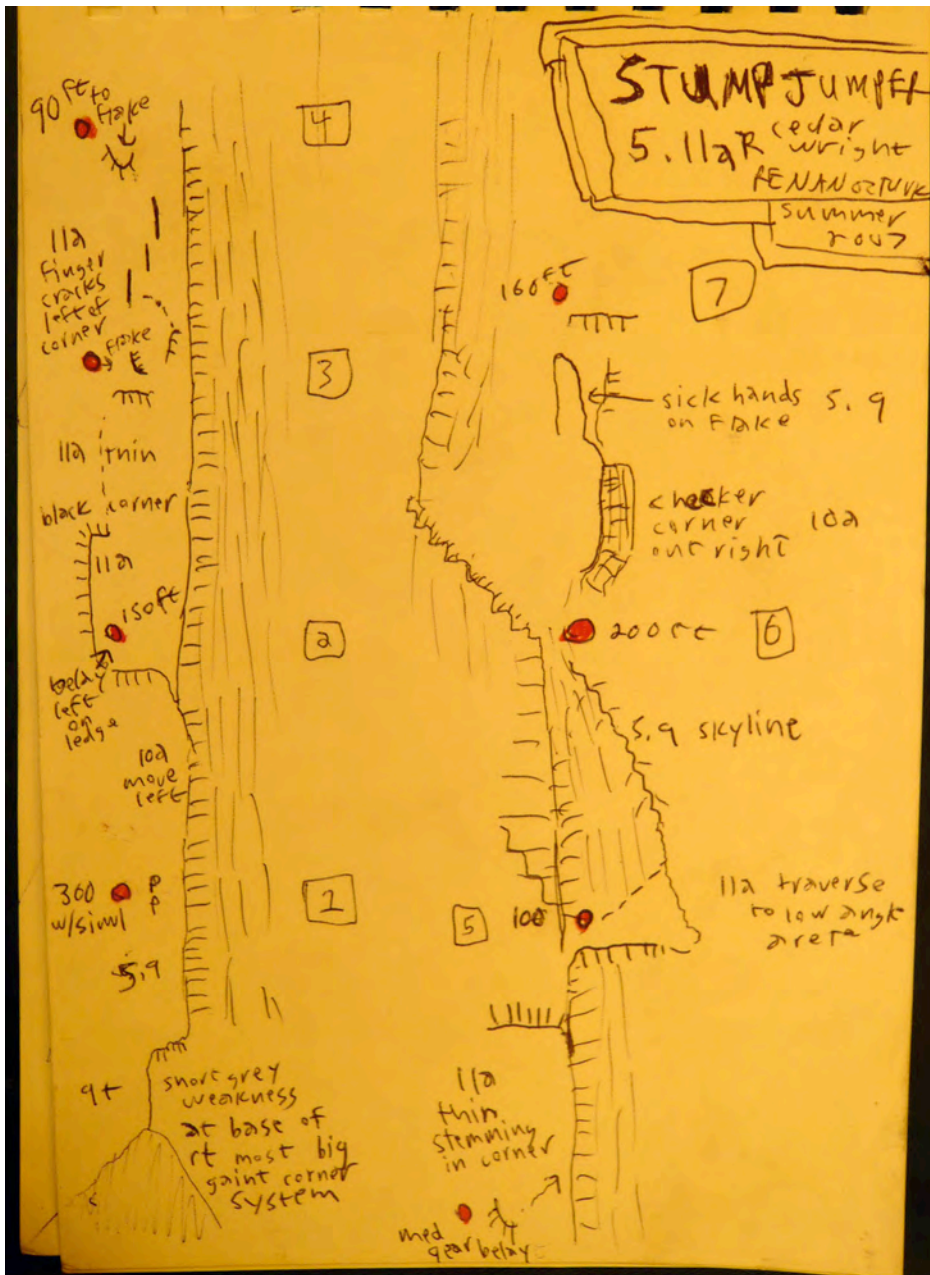 STUMP JUMPER
5.11a R cedar
wright
RENAN OZTURK
summer
2007
90 ft to
flake
4
11a
finger
cracks
left of
corner
flake
3
11a thin
black corner
11a
150ft
2
belay
left
on
ledge
10a
move
left
300
w/simul
P
P
1
5.9
9+
short grey
weakness
at base of
rt most big
gaint corner
system
160ft
7
sick hands 5.9
on flake
checker
corner 10a
out right
200 ft
6
5.9 skyline
11a traverse
to low angle
arete
5
100
11a
thin
stemming
in corner
med
gear belay